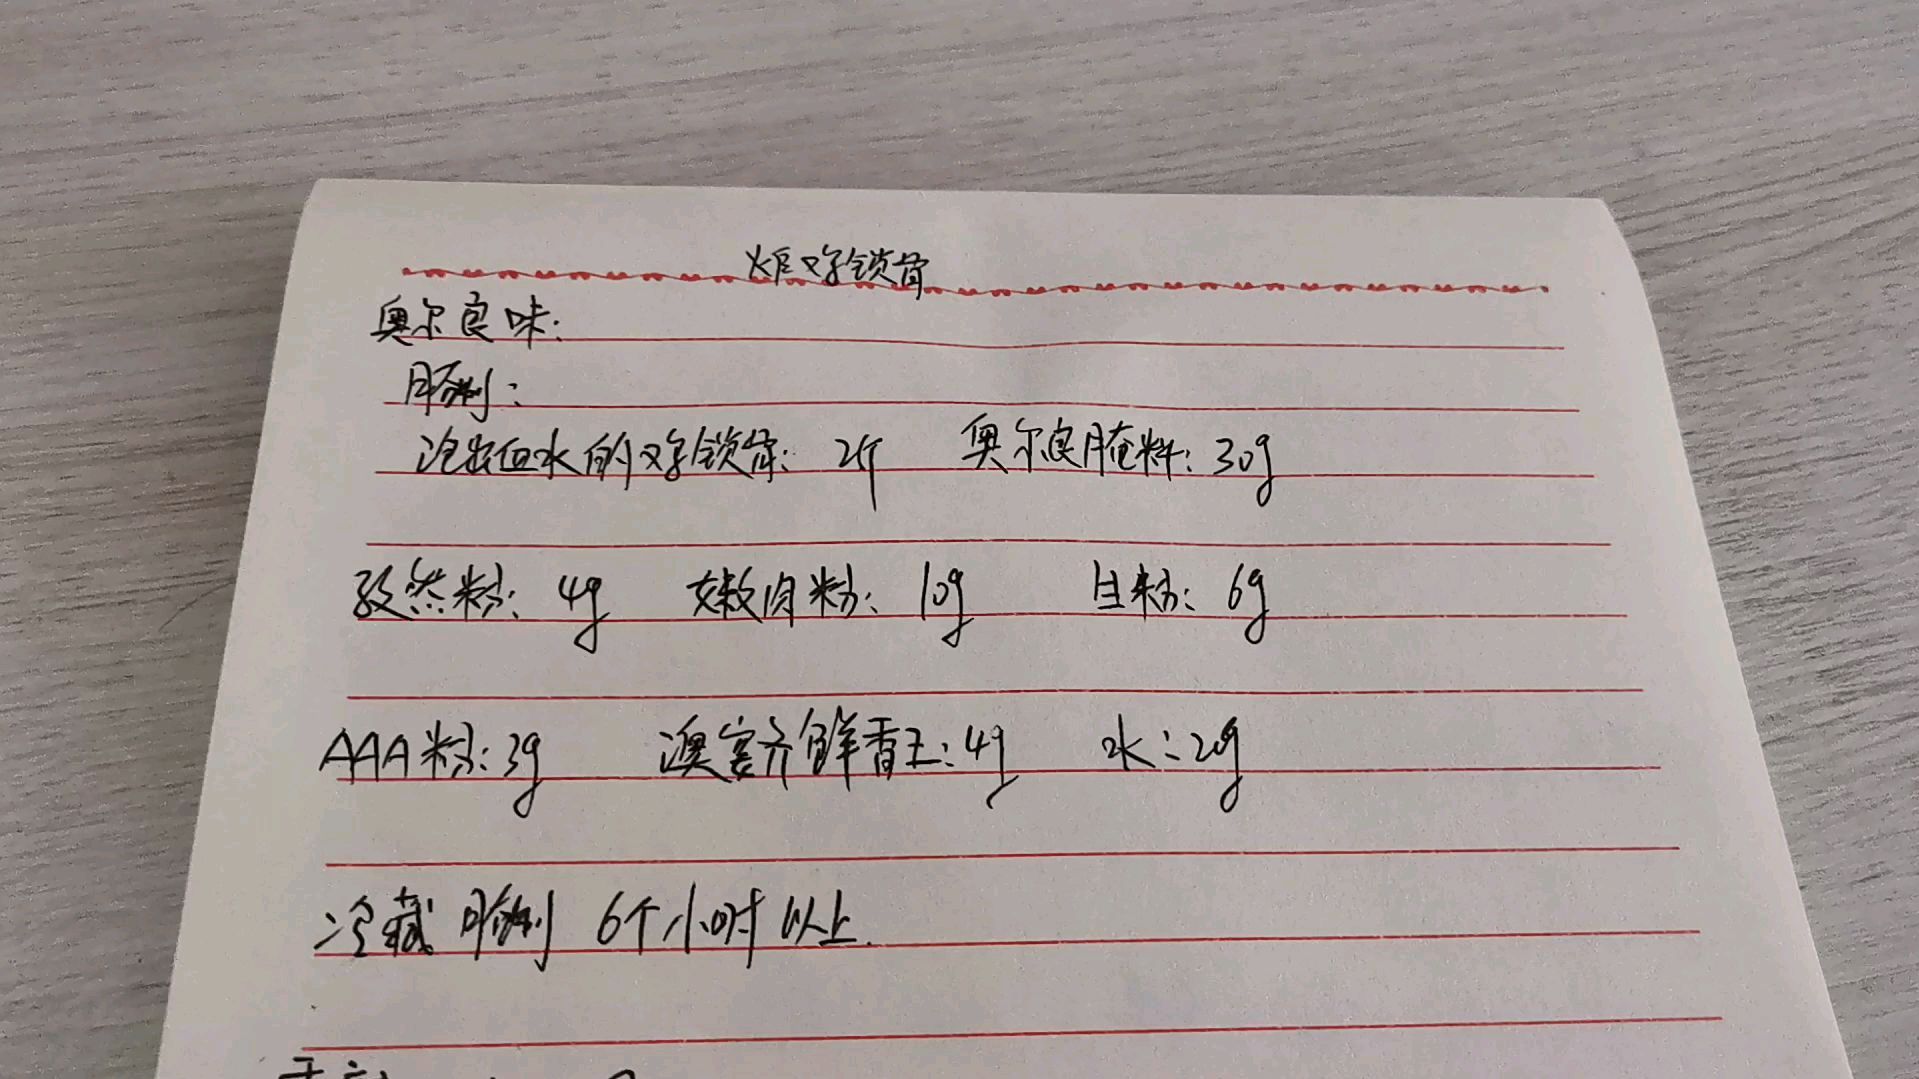 炬鸡锁骨
奥尔良味:
腌制:
泡出血水的鸡锁骨: 2斤 奥尔良腌料: 30g
孜然粉: 4g 嫩肉粉: 10g 生粉: 6g
AAA粉: 3g 澳客齐鲜香王: 4g 水: 20g
冷藏腌制 6个小时以上.